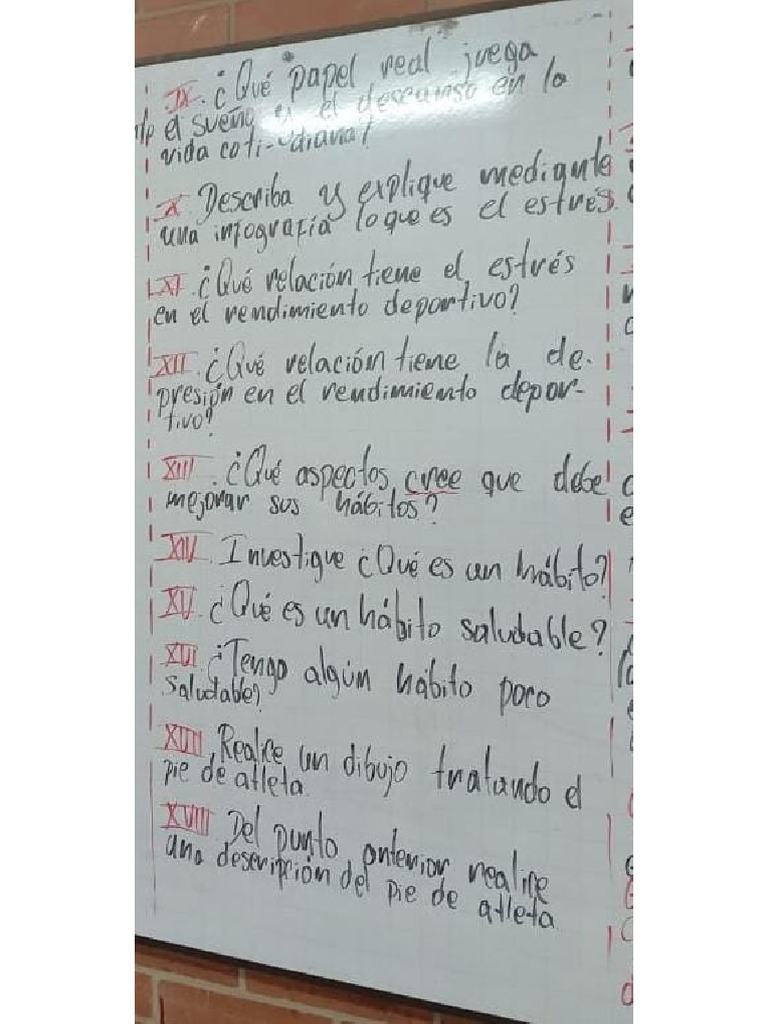 IX. ¿Qué papel real juega
el sueño y el descanso en la
vida coti-diana?
X. Describa y explique mediante
una infografía lo que es el estrés.
XI. ¿Qué relación tiene el estrés
en el rendimiento deportivo?
XII. ¿Qué relación tiene la de-
presión en el rendimiento depor-
tivo?
XIII. ¿Qué aspectos cree que debe
mejorar sus hábitos?
XIV. Investigue ¿Qué es un hábito?
XV. ¿Qué es un hábito saludable?
XVI. ¿Tengo algún hábito poco
saludable?
XVII. Realice un dibujo tratando el
pie de atleta.
XVIII Del punto anterior realice
una descripción del pie de atleta